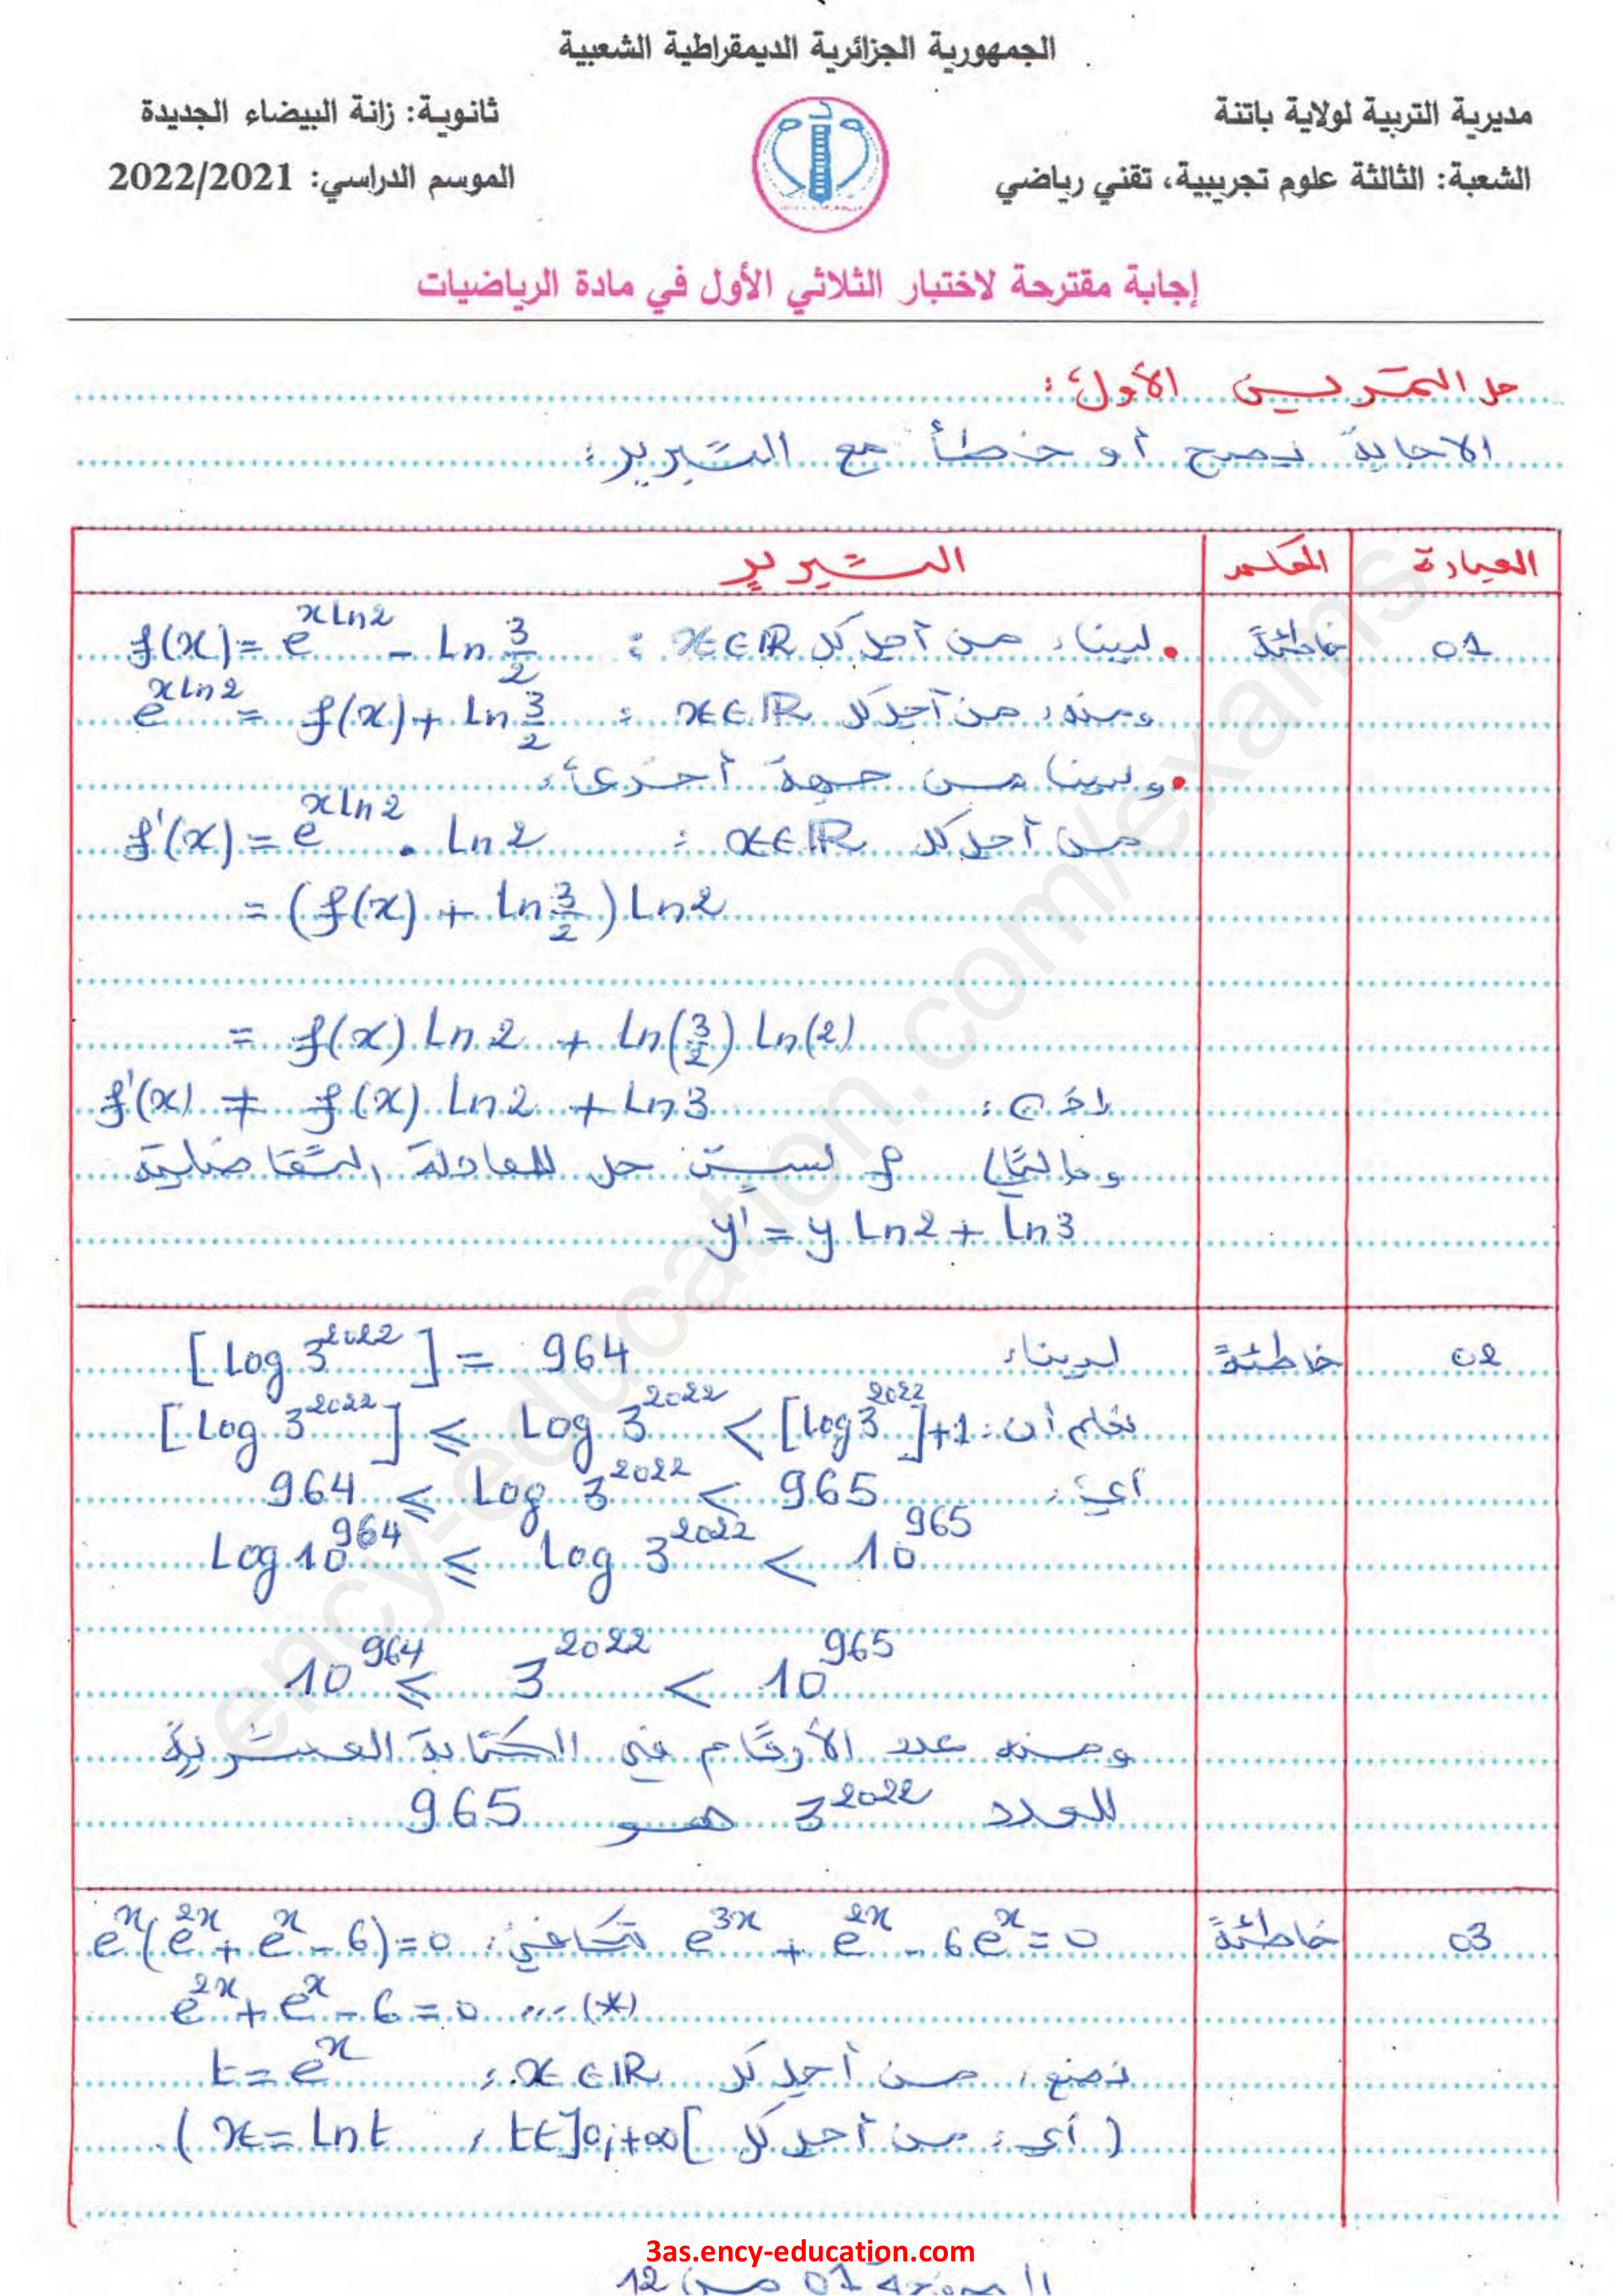 الجمهورية الجزائرية الديمقراطية الشعبية
مديرية التربية لولاية باتنة
ثانوية: زانة البيضاء الجديدة
الشعبة: الثالثة علوم تجريبية، تقني رياضي
الموسم الدراسي: 2022/2021
إجابة مقترحة لاختبار الثلاثي الأول في مادة الرياضيات
حل التمرين الأول:
الاجابة بصح أو خطأ مع التبرير:
العبارة الحكم التبرير
01 خاطئة • لدينا، من أجل كل x∈ℝ : f(x) = e^{x ln2} - ln 3/2
ومنه، من أجل كل x∈ℝ : e^{x ln2} = f(x) + ln 3/2
• ولدينا من جهة أخرى،
من أجل كل x∈ℝ : f'(x) = e^{x ln2} . ln2
= (f(x) + ln 3/2) ln2
= f(x) ln2 + ln(3/2) ln(2)
إذن: f'(x) ≠ f(x) ln2 + ln3
وبالتالي f ليست حل للمعادلة التفاضلية
y' = y ln2 + ln3
02 خاطئة لدينا، [log 3^{2022}] = 964
نعلم أن: [log 3^{2022}] ≤ log 3^{2022} < [log 3^{2022}]+1
أي، 964 ≤ log 3^{2022} < 965
log 10^{964} ≤ log 3^{2022} < 10^{965}
10^{964} ≤ 3^{2022} < 10^{965}
ومنه عدد الأرقام في الكتابة العشرية
للعدد 3^{2022} هو 965
03 خاطئة e^{3x} + e^{2x} - 6e^{x} = 0 تكافئ، e^{x}(e^{2x} + e^{x} - 6) = 0
e^{2x} + e^{x} - 6 = 0 ....(*)
نضع، من أجل كل x∈ℝ، t = e^{x}
(أي، من أجل كل t∈]0;+∞[ ، x = ln t).
3as.ency-education.com
الصفحة 01 من 12
ency-education.com/exams